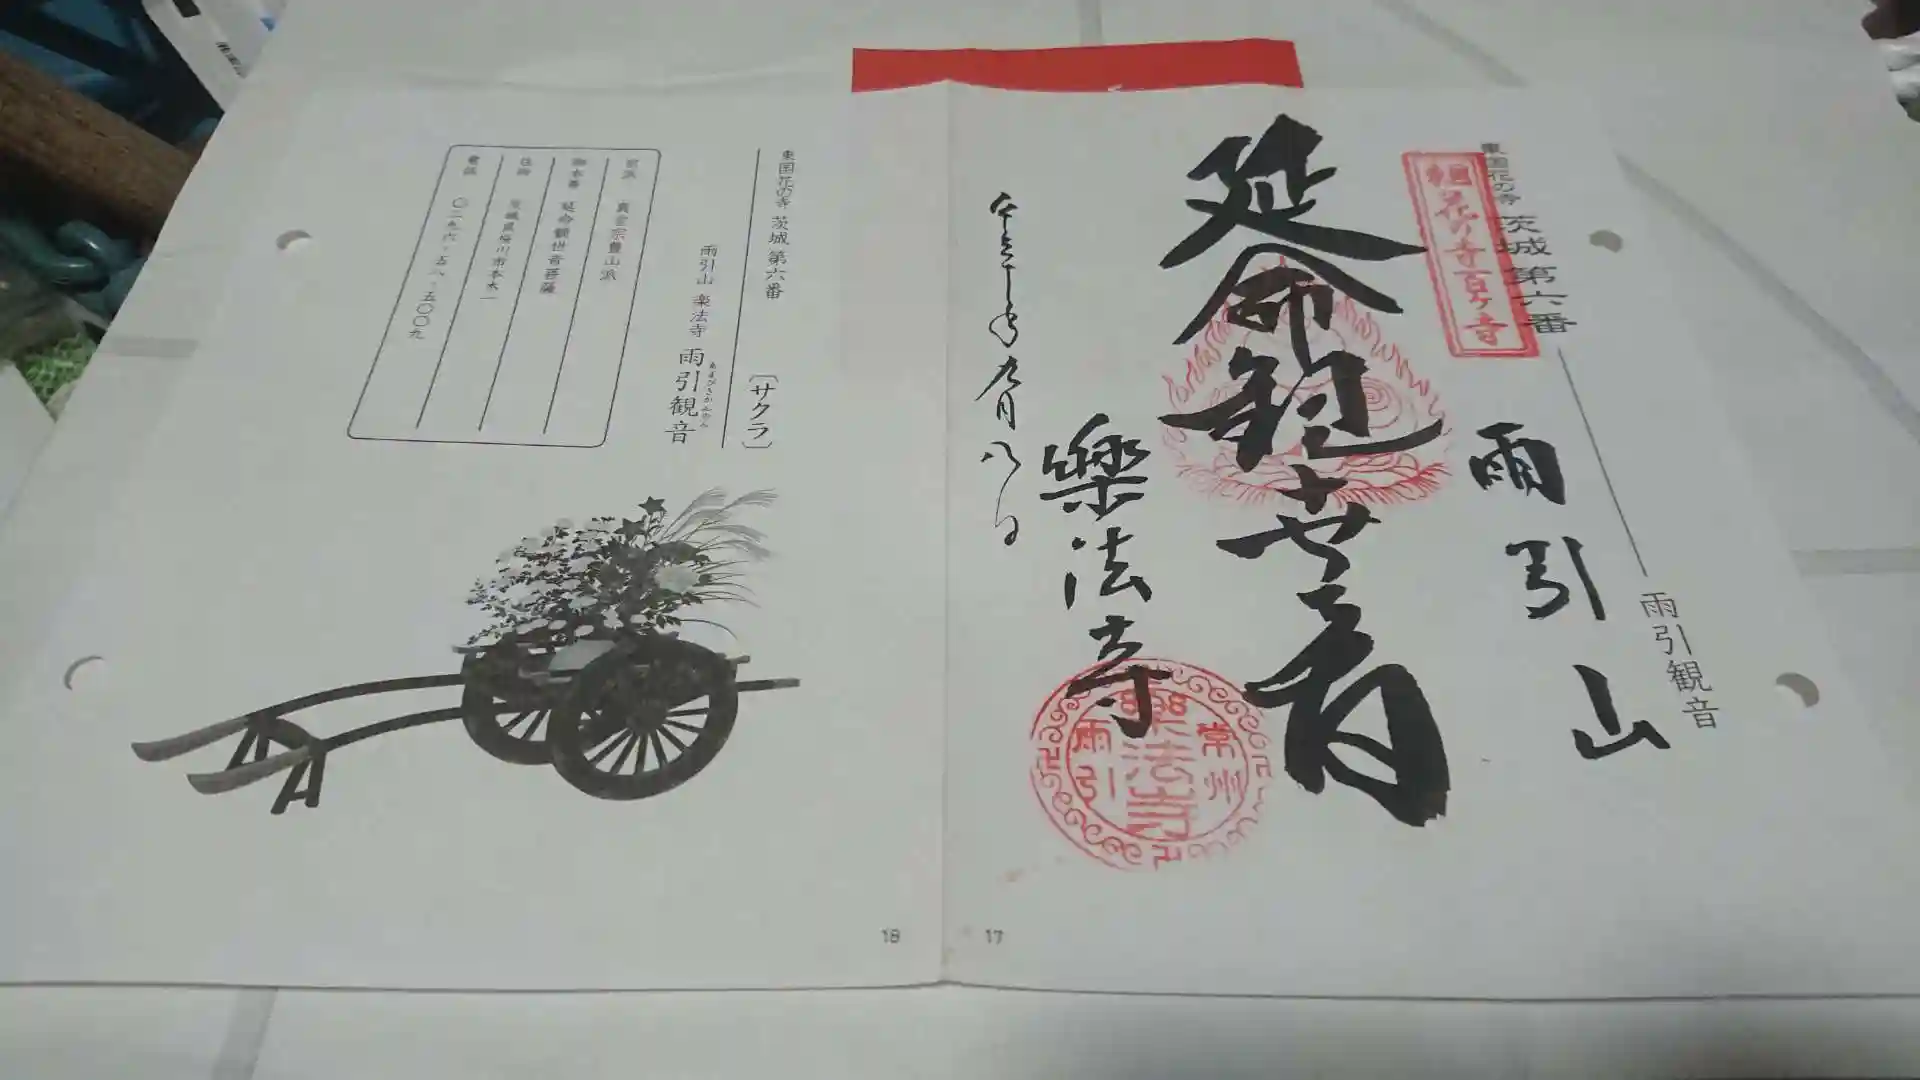 東国花の寺 茨城第六番
雨引観音
東国花の寺百ヶ寺
雨引山
延命観世音
樂法寺
常州
樂法寺
雨引
平成三十年九月八日
17
東国花の寺 茨城第六番
〔サクラ〕
雨引山 楽法寺 雨引観音
あまびきかんのん
宗派 真言宗豊山派
御本尊 延命観世音菩薩
住所 茨城県桜川市本木一
電話 〇二九六・五八・五〇〇九
18